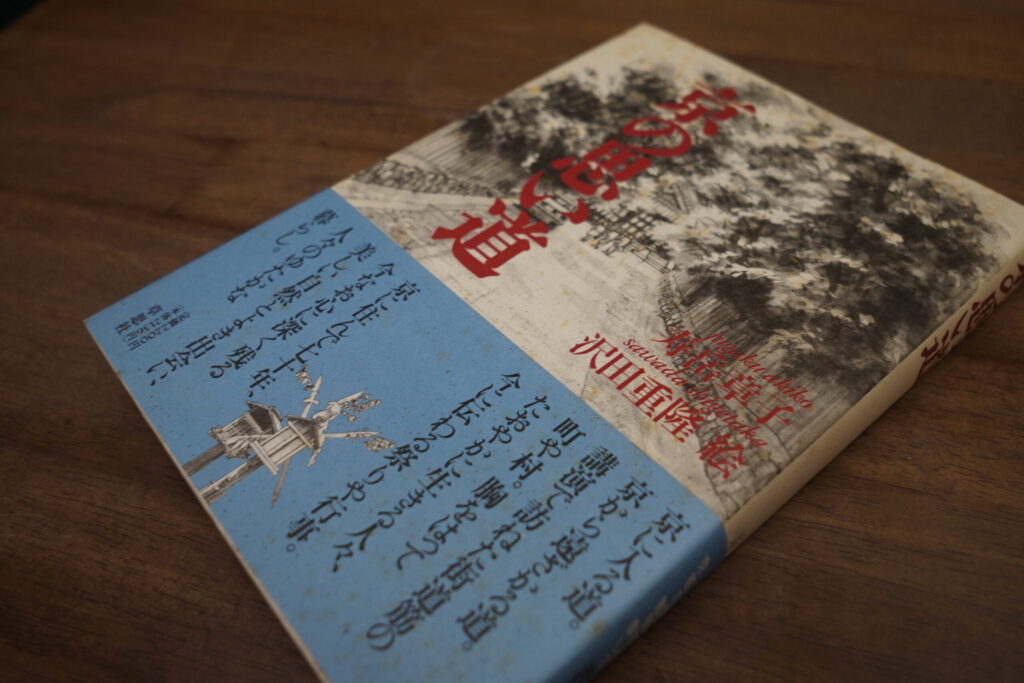 京の思い道
jugaku akiko
寿岳章子
sawada shigetaka
沢田重隆 絵
京に入る道。
京から遠ざかる道。
講演で訪ねた街道筋の
町や村。胸をはって
たおやかに生きる人々、
今に伝わる祭りや行事。
京に住んで七十年、
今なお心に深く残る
美しい自然とよき出会い、
人々のゆたかな
暮らし。
草思社
の思い道